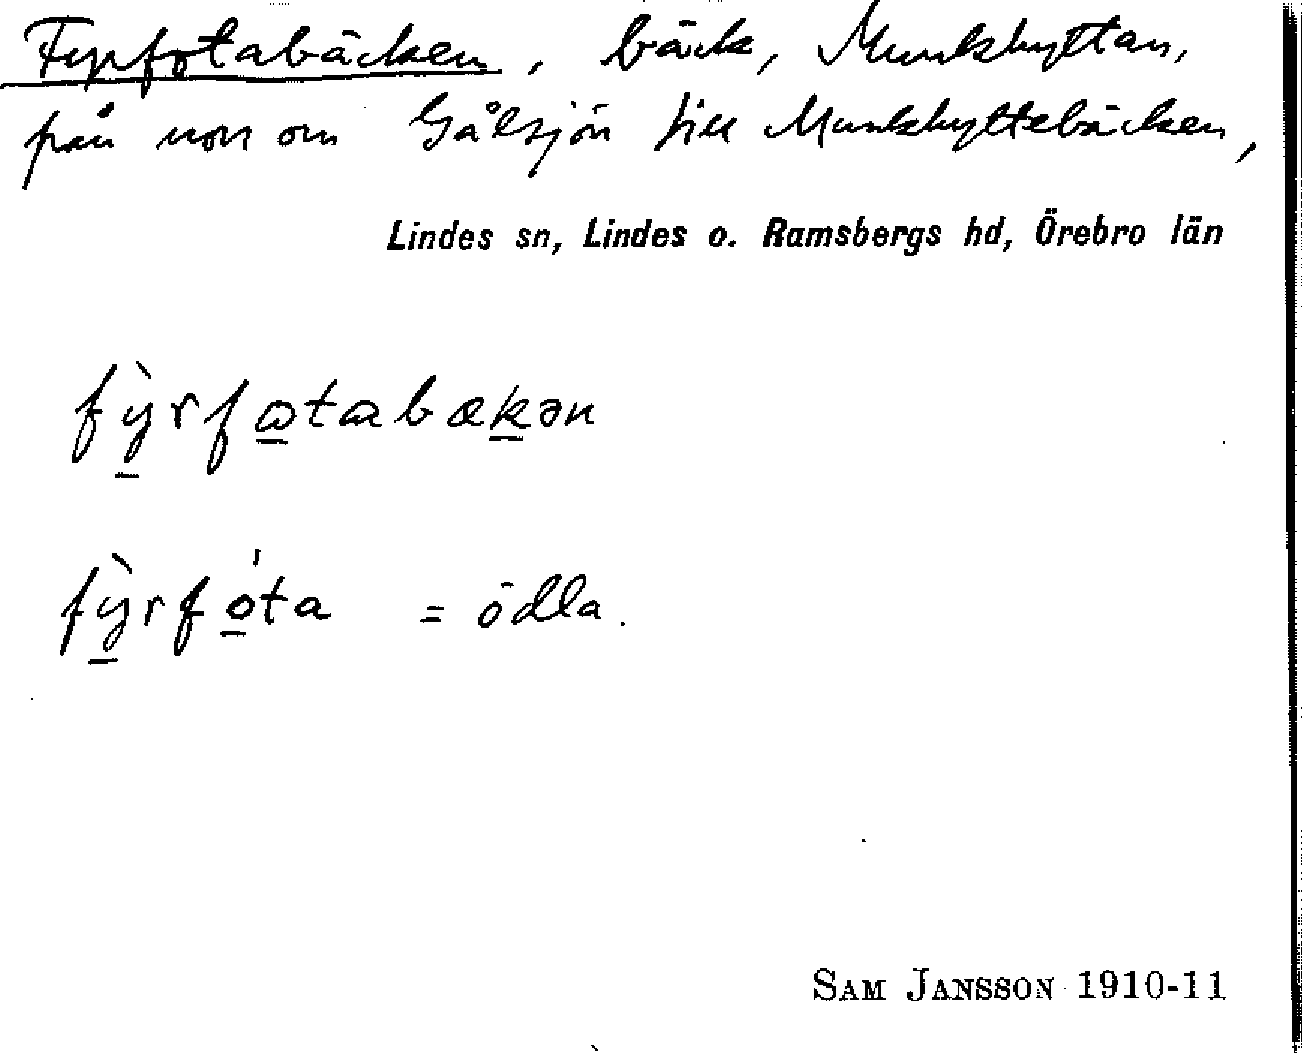 Fyrfotabäcken, bäck, Munkhyttan,
från norr om Gålsjön till Munkhyttebäcken,
Lindes sn, Lindes o. Ramsbergs hd, Örebro län
fỳrfotabækən
fỳrfóta = ödla.
SAM JANSSON 1910-11